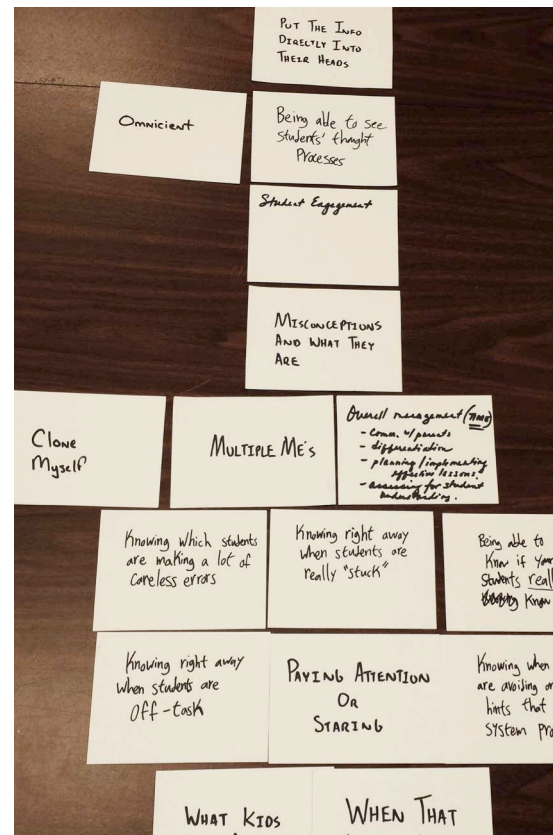 PUT THE INFO
DIRECTLY INTO
THEIR HEADS
OMNICIENT
Being able to see
students' thought
Processes
Student Engagement
MISCONCEPTIONS
AND WHAT THEY
ARE
CLONE
MYSELF
MULTIPLE ME'S
Overall management (TIME)
- Comm. w/ parents
- differentiation
- planning/implementing
effective lessons.
- assessing for student
understanding.
Knowing which students
are making a lot of
careless errors
Knowing right away
when students are
really "stuck"
Being able to
know if your
students reall
know
Knowing right away
when students are
off-task
PAYING ATTENTION
OR
STARING
Knowing when
are avoiding or
hints that
system pro
WHAT KIDS
WHEN THAT